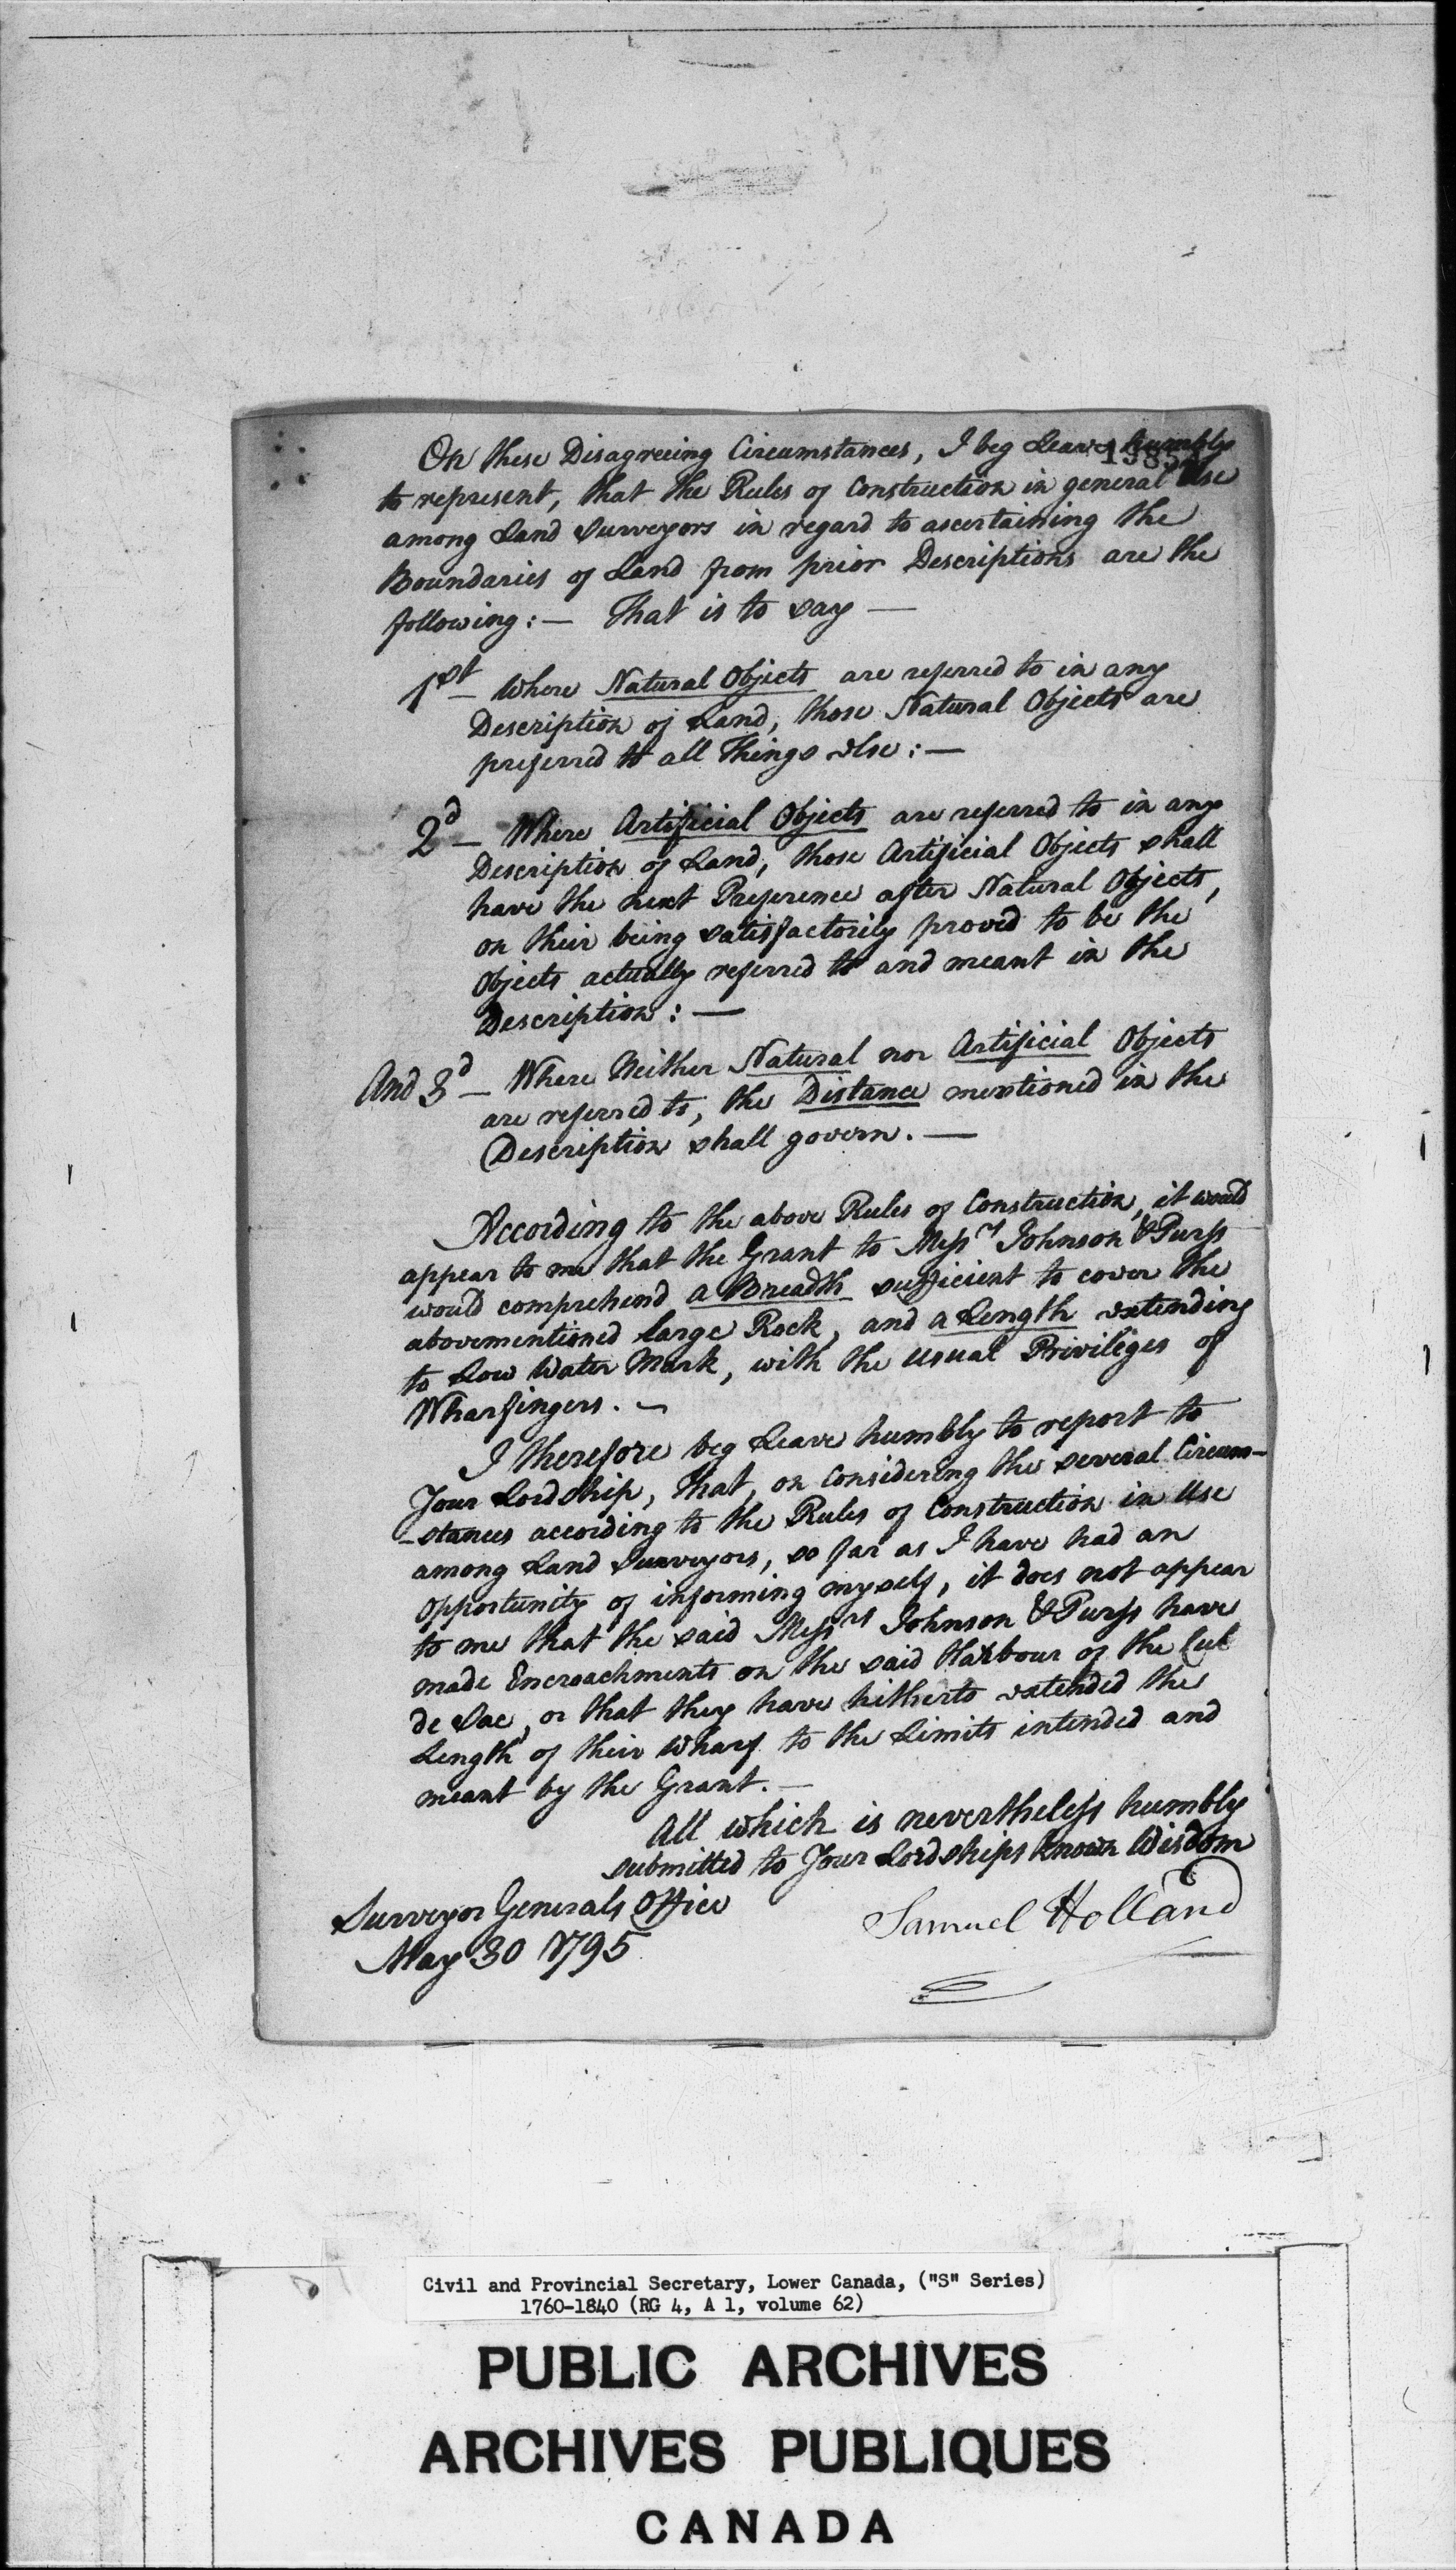 On these Disagreeing Circumstances, I beg Leave humbly
to represent, that the Rules of Construction in general Use
among Land Surveyors in regard to ascertaining the
Boundaries of Land from prior Descriptions are the
following: — That is to say —
1st — Where Natural Objects are referred to in any
Description of Land, those Natural Objects are
preferred to all Things else: —
2d — Where Artificial Objects are referred to in any
Description of Land, those Artificial Objects shall
have the next Preference after Natural Objects,
on their being satisfactorily proved to be the
Objects actually referred to and meant in the
Description: —
And 3d — Where Neither Natural nor Artificial Objects
are referred to, the Distance mentioned in the
Description shall govern. —
According to the above Rules of Construction, it would
appear to me that the Grant to Messrs Johnson & Purss
would comprehend a Breadth sufficient to cover the
abovementioned large Rock, and a Length extending
to Low Water Mark, with the usual Privileges of
Wharfingers. —
I therefore beg Leave humbly to report to
Your Lordship, That, on Considering the several Circum-
-stances according to the Rules of Construction in Use
among Land Surveyors, so far as I have had an
Opportunity of informing myself, it does not appear
to me that the said Messrs Johnson & Purss have
made Encroachments on the said Harbour of the Cul
de Sac, or that they have hitherto extended the
Length of their Wharf to the Limits intended and
meant by the Grant. —
All which is nevertheless humbly
submitted to Your Lordships known Wisdom
Surveyor Generals Office
May 30 1795
Samuel Holland
Civil and Provincial Secretary, Lower Canada, ("S" Series)
1760-1840 (RG 4, A 1, volume 62)
PUBLIC ARCHIVES
ARCHIVES PUBLIQUES
CANADA